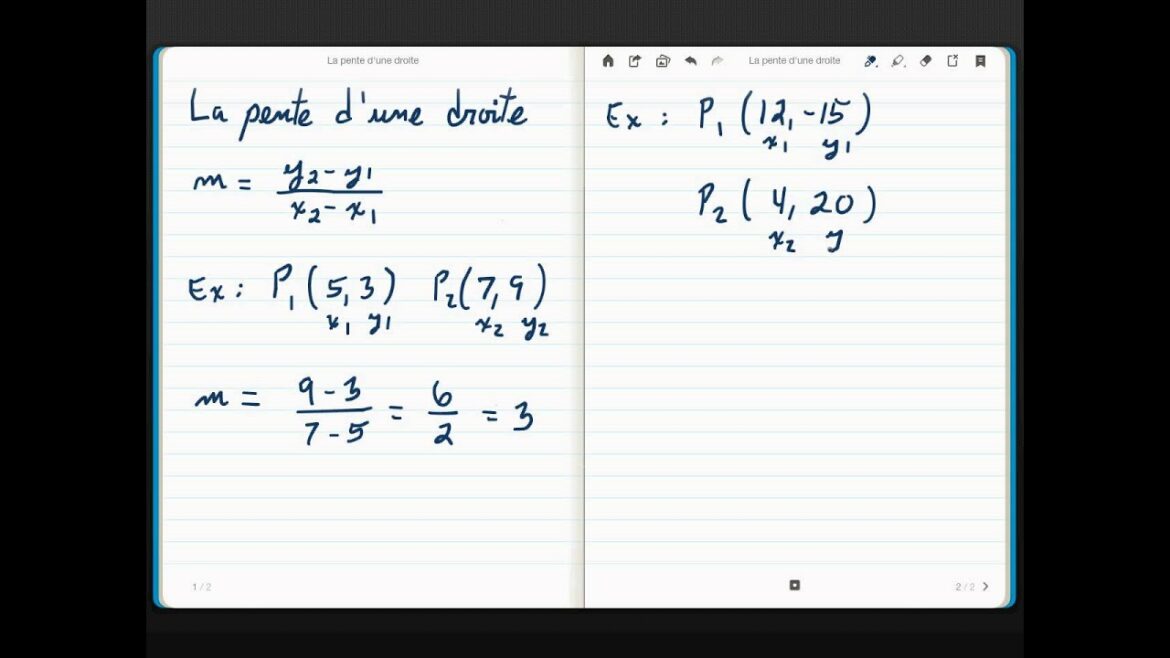 La pente d'une droite
La pente d'une droite
m = y2 - y1 / x2 - x1
Ex : P1 (5, 3) P2 (7, 9)
x1 y1 x2 y2
m = 9 - 3 / 7 - 5 = 6 / 2 = 3
1 / 2
La pente d'une droite
Ex : P1 (12, -15)
x1 y1
P2 (4, 20)
x2 y
2 / 2